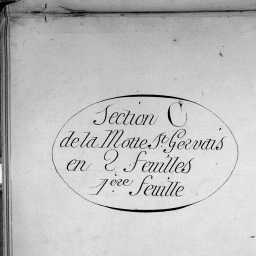 Section C
de la Motte St. Gervais
en 2 feuilles
1ère feuille